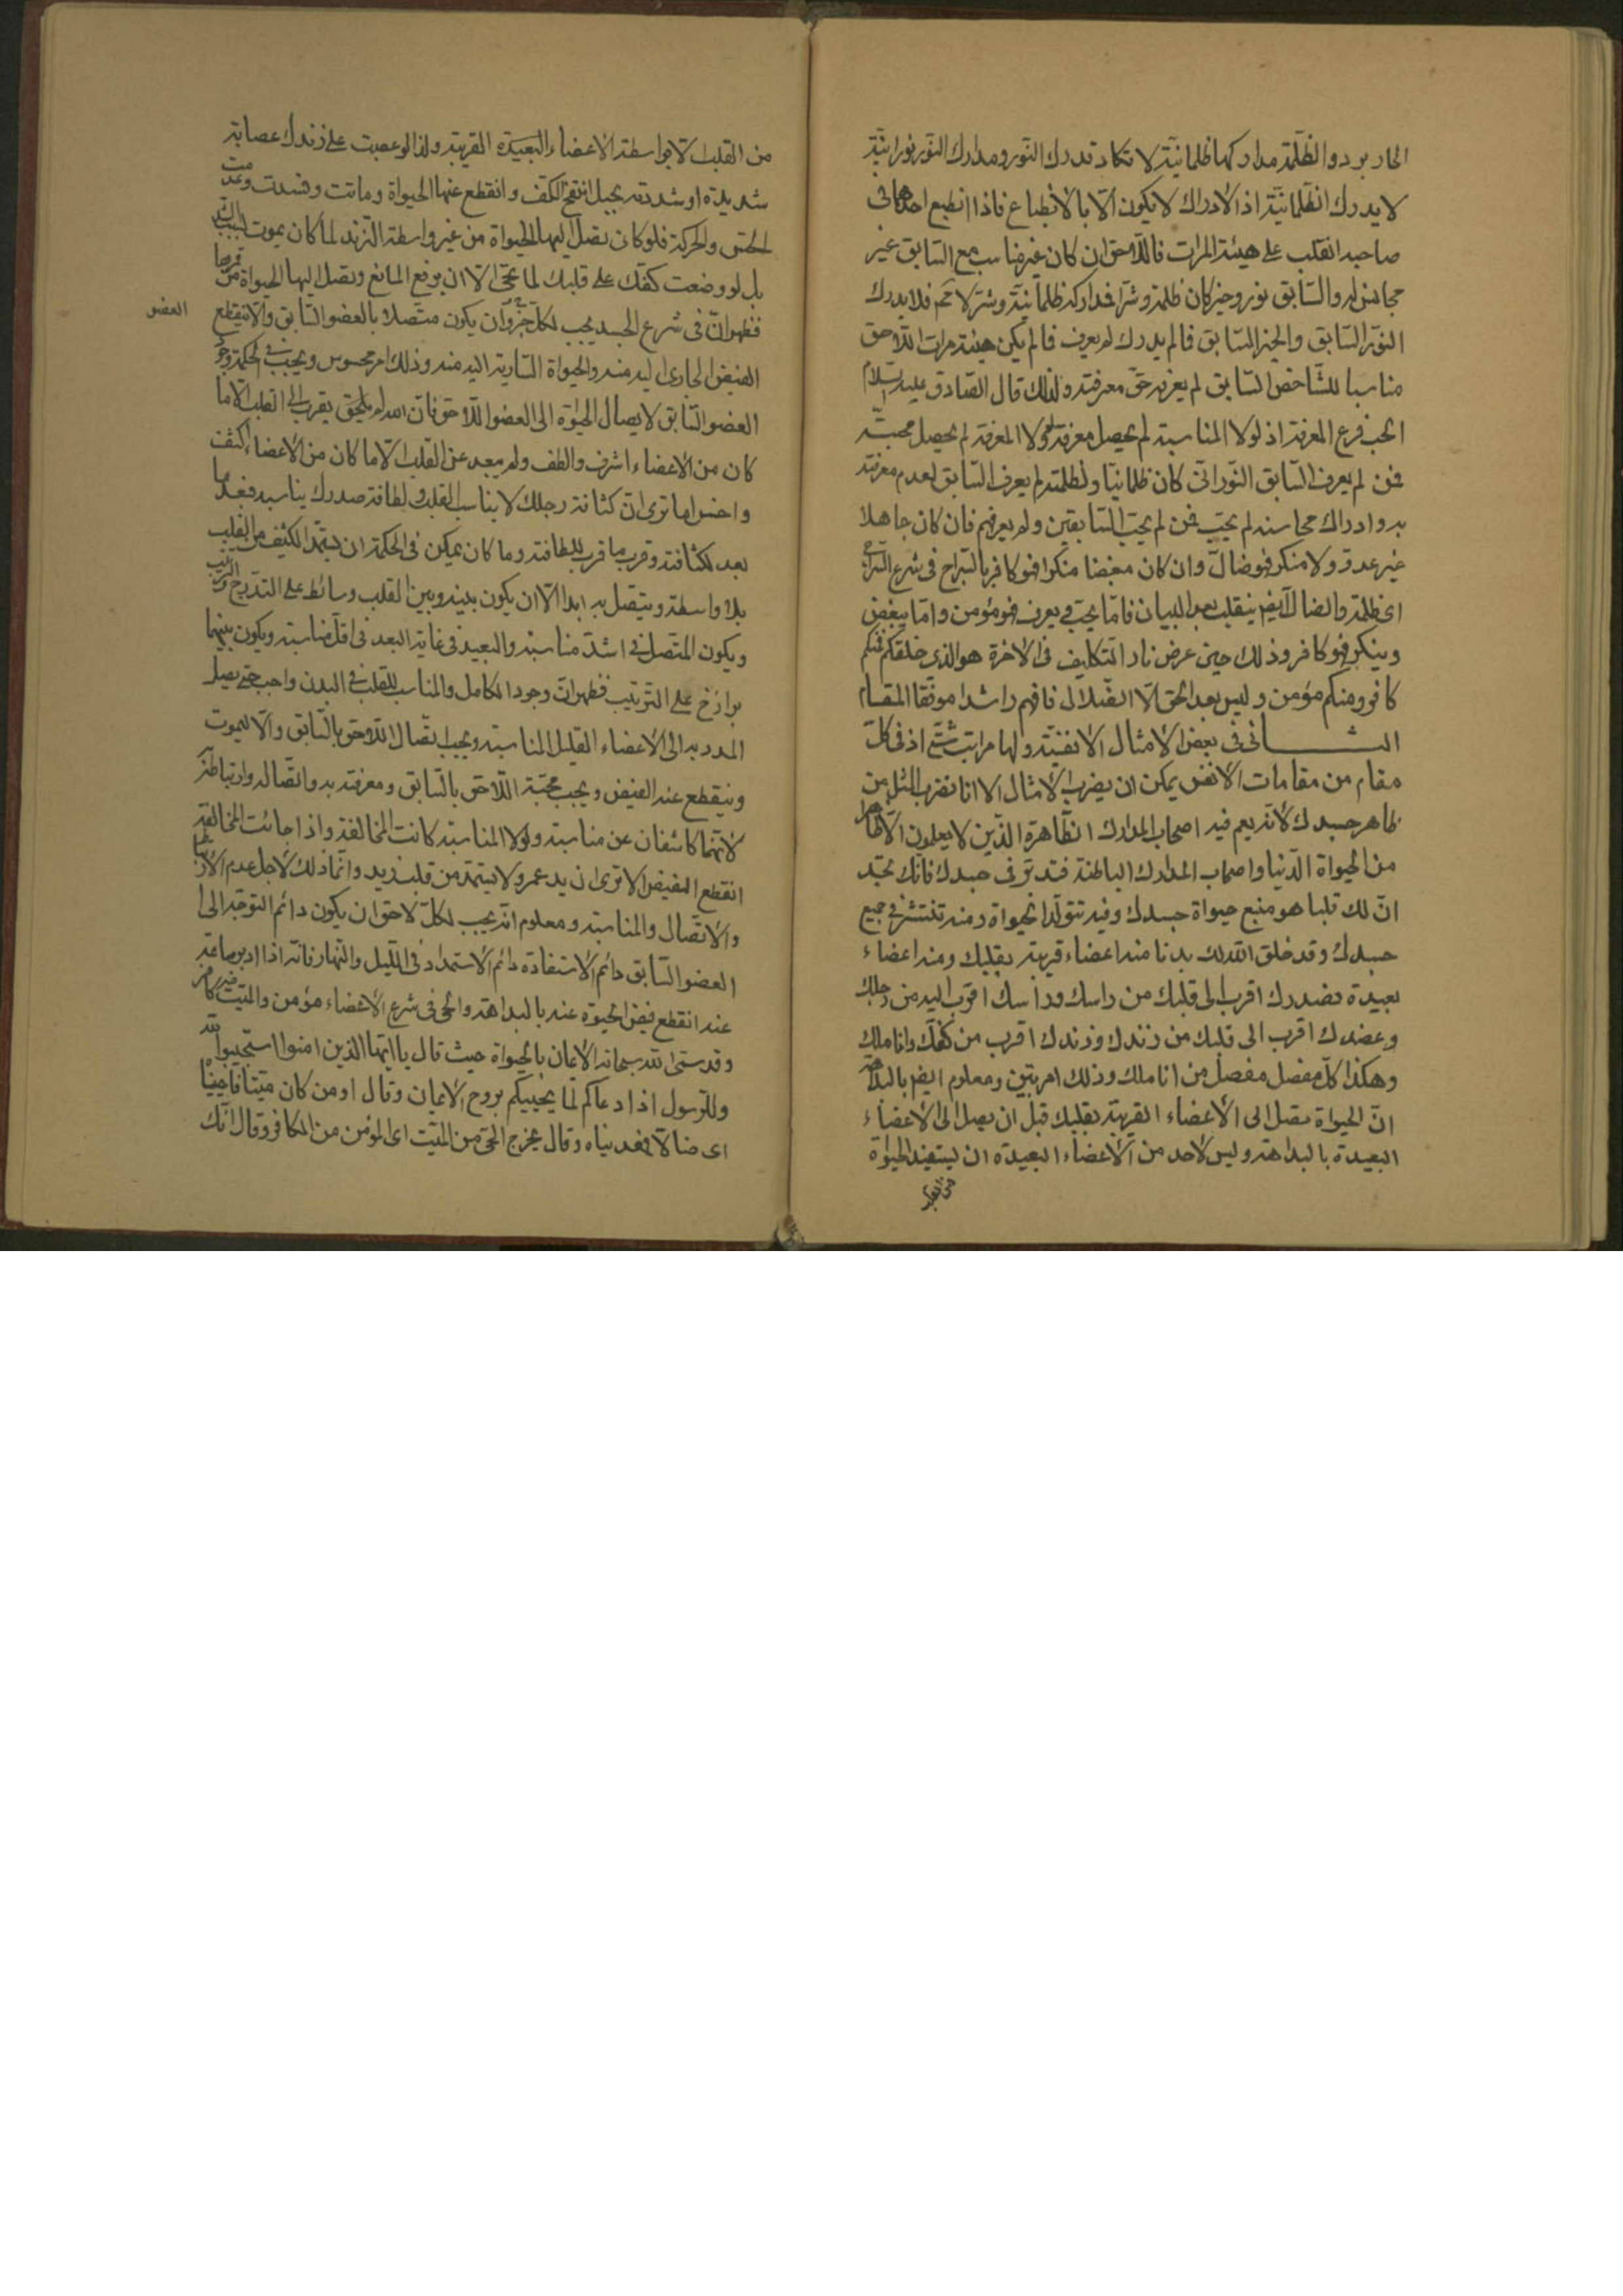 الحار برد والظلمة مداركها ظلمانية لا تكاد تدرك النور ومدارك النور نورانية
لا يدرك الظلمانية اذ الادراك لا يكون الا بالانطباع فاذا انطبع احدهما فى
صاحبه انقلب على هيئة المرات فاللاحق ان كان غير مناسب مع السابق غير
مجانس له والسابق نور وخير كان ظلمة وشرا فداركه ظلمانية وشر لا محم فلا يدرك
النور السابق والخير السابق فالم يدرك لم يعرف فالم يكن هيئة مرات اللاحق
مناسبا للشاخص السابق لم يعرفه حق معرفته ولذلك قال الصادق عليه السلام
الحب فرع المعرفة اذ لولا المناسبة لم يحصل معرفة ولولا المعرفة لم يحصل محبة
فمن لم يعرف السابق النورانى كان ظلمانيا ولظلمته لم يعرف السابق لعدم معرفته
به وادراك محاسنه لم يحبه فمن لم يحب السابقين ولم يعرفهم فان كان جاهلا
غير عدو ولا منكر فهو ضال وان كان مبغضا منكرا فهو كافر بالسراج فى شرع السراج
اى ظلمة والضال ايضر ينقلب بعد البيان فاما يحب ويعرف فهو مؤمن واما يبغض
وينكر فهو كافر وذلك حين عرض نار التكليف فى الاخرة هو الذى خلقكم فمنكم
كافر ومنكم مؤمن وليس بعد الحق الا الضلال فافهم راشدا موفقا المقام
الثانى فى بعض الامثال الانفسية ولها مراتب شتى اذ فى كل
مقام من مقامات الانفس يمكن ان يضرب الامثال الا انا نضرب المثل من
ظاهر جسدك لانه يعم فيه اصحاب المدارك الظاهرة الذين لا يعلمون الا ظاهرا
من الحيواة الدنيا واصحاب المدارك الباطنة فتدبر فى جسدك فانك تجد
ان لك قلبا هو منبع حيواة جسدك وفيه تتولد الحيواة ومنه تنتشر فى جميع
جسدك وقد خلق الله لك بدنا منه اعضاء قريبة بقلبك ومنه اعضاء
بعيدة فصدرك اقرب الى قلبك من راسك وراسك اقرب اليه من رجلك
وعضدك اقرب الى قلبك من زندك وزندك اقرب من كفك واناملك
وهكذا كل مفصل مفصل من اناملك وذلك امر بين ومعلوم ايضر بالبداهة
ان الحيواة تصل الى الاعضاء القريبة بقلبك قبل ان يصل الى الاعضاء
البعيدة بالبداهة وليس لاحد من الاعضاء البعيدة ان يستفيد الحيواة
من القلب
من القلب الا بواسطة الاعضاء البعيدة القريبة ولذا لو عصبت على زندك عصابة
شديدة او شددته بحبل انتفخ الكف وانقطع عنها الحيواة وماتت وفسدت وعدمت
الحس والحركة فلو كان تصل اليها الحيواة من غير واسطة الزند لما كان يموت
بل لو وضعت كفك على قلبك لما تحيى الا ان يرفع المانع وتصل اليها الحيواة من
فظهر ان فى شرع الجسد يجب لكل جزؤ ان يكون متصلا بالعضو السابق والا ينقطع
العضو
الفيض الجارى اليه منه والحيواة السارية اليه منه وذلك امر محسوس ويجب فى الحكمة وجود
العضو السابق لايصال الحيوة الى العضو اللاحق فان الله لم يلحق بقرب الى القلب الا ما
كان من الاعضاء اشرف والطف ولم يبعد عن القلب الا ما كان من الاعضاء اكثف
واخس اما ترى ان كثافة رجلك لا يناسب القلب ولطافة صدرك يناسبه فبعد ما
بعد لكثافته وقرب ما قرب للطافته وما كان يمكن فى الحكمة ان يستمد الكثيف من القلب
بلا واسطة ويتصل به ابدا الا ان يكون بينه وبين القلب وسائط على التدريج
ويكون المتصل فى اشد مناسبة والبعيد فى غاية البعد فى اقل مناسبة ويكون بينهما
برازخ على الترتيب فظهر ان وجود الكامل والمناسب للقلب فى البدن واجب حتى يصل
المدد به الى الاعضاء القليل المناسبة ويجب اتصال اللاحق بالسابق والا ليموت
وينقطع عنه الفيض ويجب محبة اللاحق بالسابق ومعرفته به واتصاله وارتباطه
لانهما كاشفان عن مناسبة ولولا المناسبة كانت المخالفة واذا جائت المخالفة
انقطع الفيض الا ترى ان يد عمرو لا يستمد من قلب زيد وانما ذلك لاجل عدم الارتباط
والاتصال والمناسبة ومعلوم انه يجب لكل لاحق ان يكون دائم التوجه الى
العضو السابق دائم الاستفادة دائم الاستمداد فى الليل والنهار فانه اذا ادبر ساعة
عنه انقطع فيض الحيوة عنه بالبداهة والحى فى شرع الاعضاء مؤمن والميت فيه كافر
وقد سمى الله سبحانه الايمان بالحيواة حيث قال يا ايها الذين امنوا استجيبوا لله
وللرسول اذا دعاكم لما يحييكم بروح الايمان وقال او من كان ميتا فاحييناه
اى ضالا فهديناه وقال يخرج الحى من الميت اى المؤمن من الكافر وقال انك